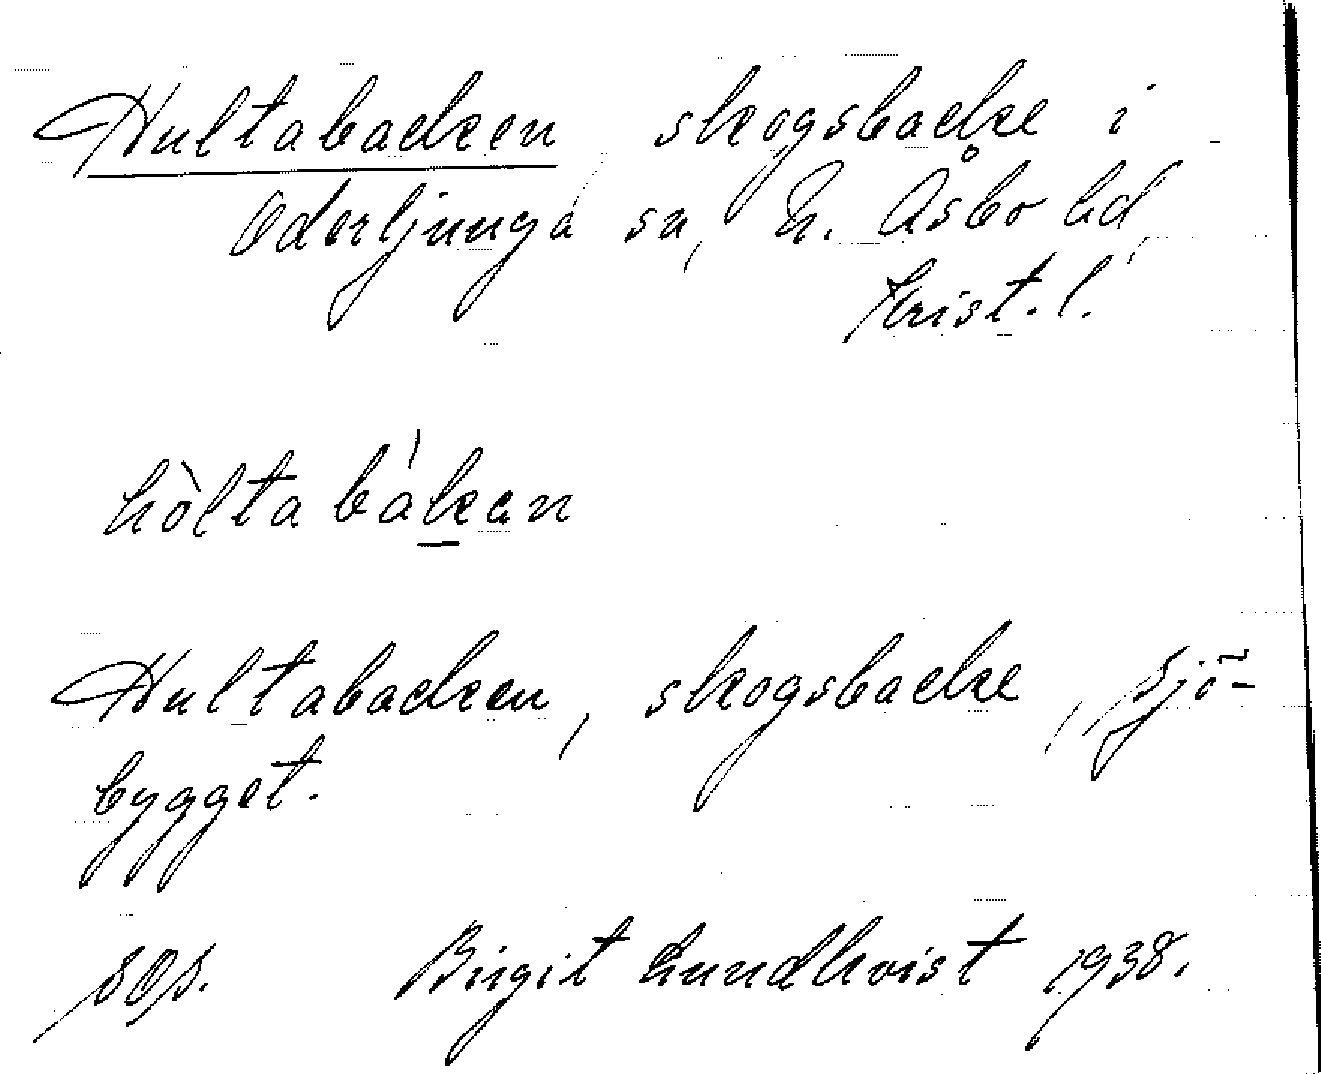 Hultabacken skogsbacke i
Oderljunga sn, N. Åsbo hd,
Krist. l.
hòltabák̲an
Hultabacken, skogsbacke, Sjö-
bygget.
SOS. Birgit Lundkvist 1938.